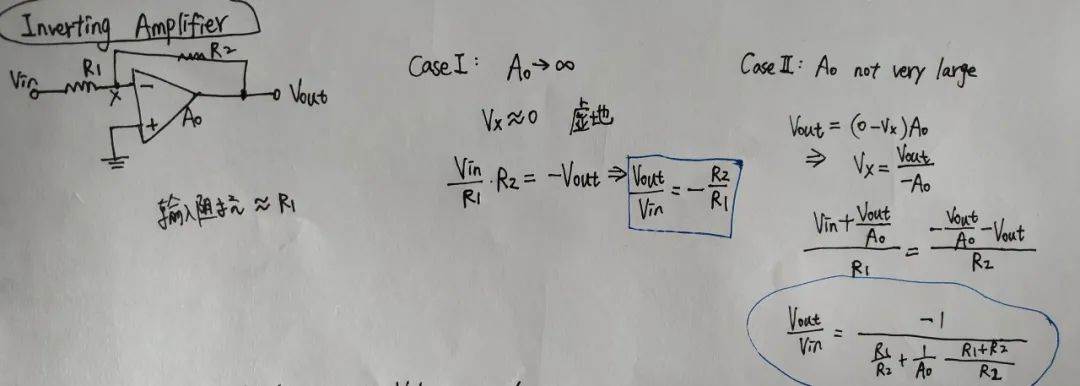 Inverting Amplifier
R1
R2
Vin
X
-
+
A₀
Vout
输入阻抗 ≈ R1
Case I: A₀→∞
Vx≈0 虚地
Vin/R1 · R2 = -Vout ⇒ Vout/Vin = -R2/R1
Case II: A₀ not very large
Vout = (0-Vx)A₀
⇒ Vx = Vout/-A₀
(Vin + Vout/A₀)/R1 = (-Vout/A₀ - Vout)/R2
Vout/Vin = -1/(R1/R2 + 1/A₀ (R1+R2)/R2)